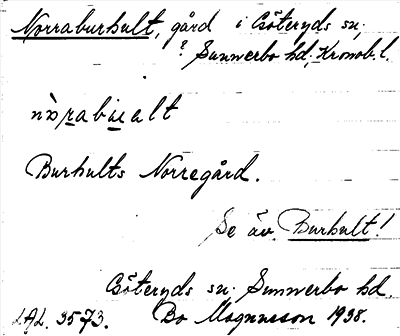 Norraburhult, gård i Göteryds sn.
? Sunnerbo hd, Kronob. l.
nòrabualt
Burhults Norregård.
Se äv. Burhult!
Göteryds sn. Sunnerbo hd.
LAL. 3573. Bo Magnusson 1938.